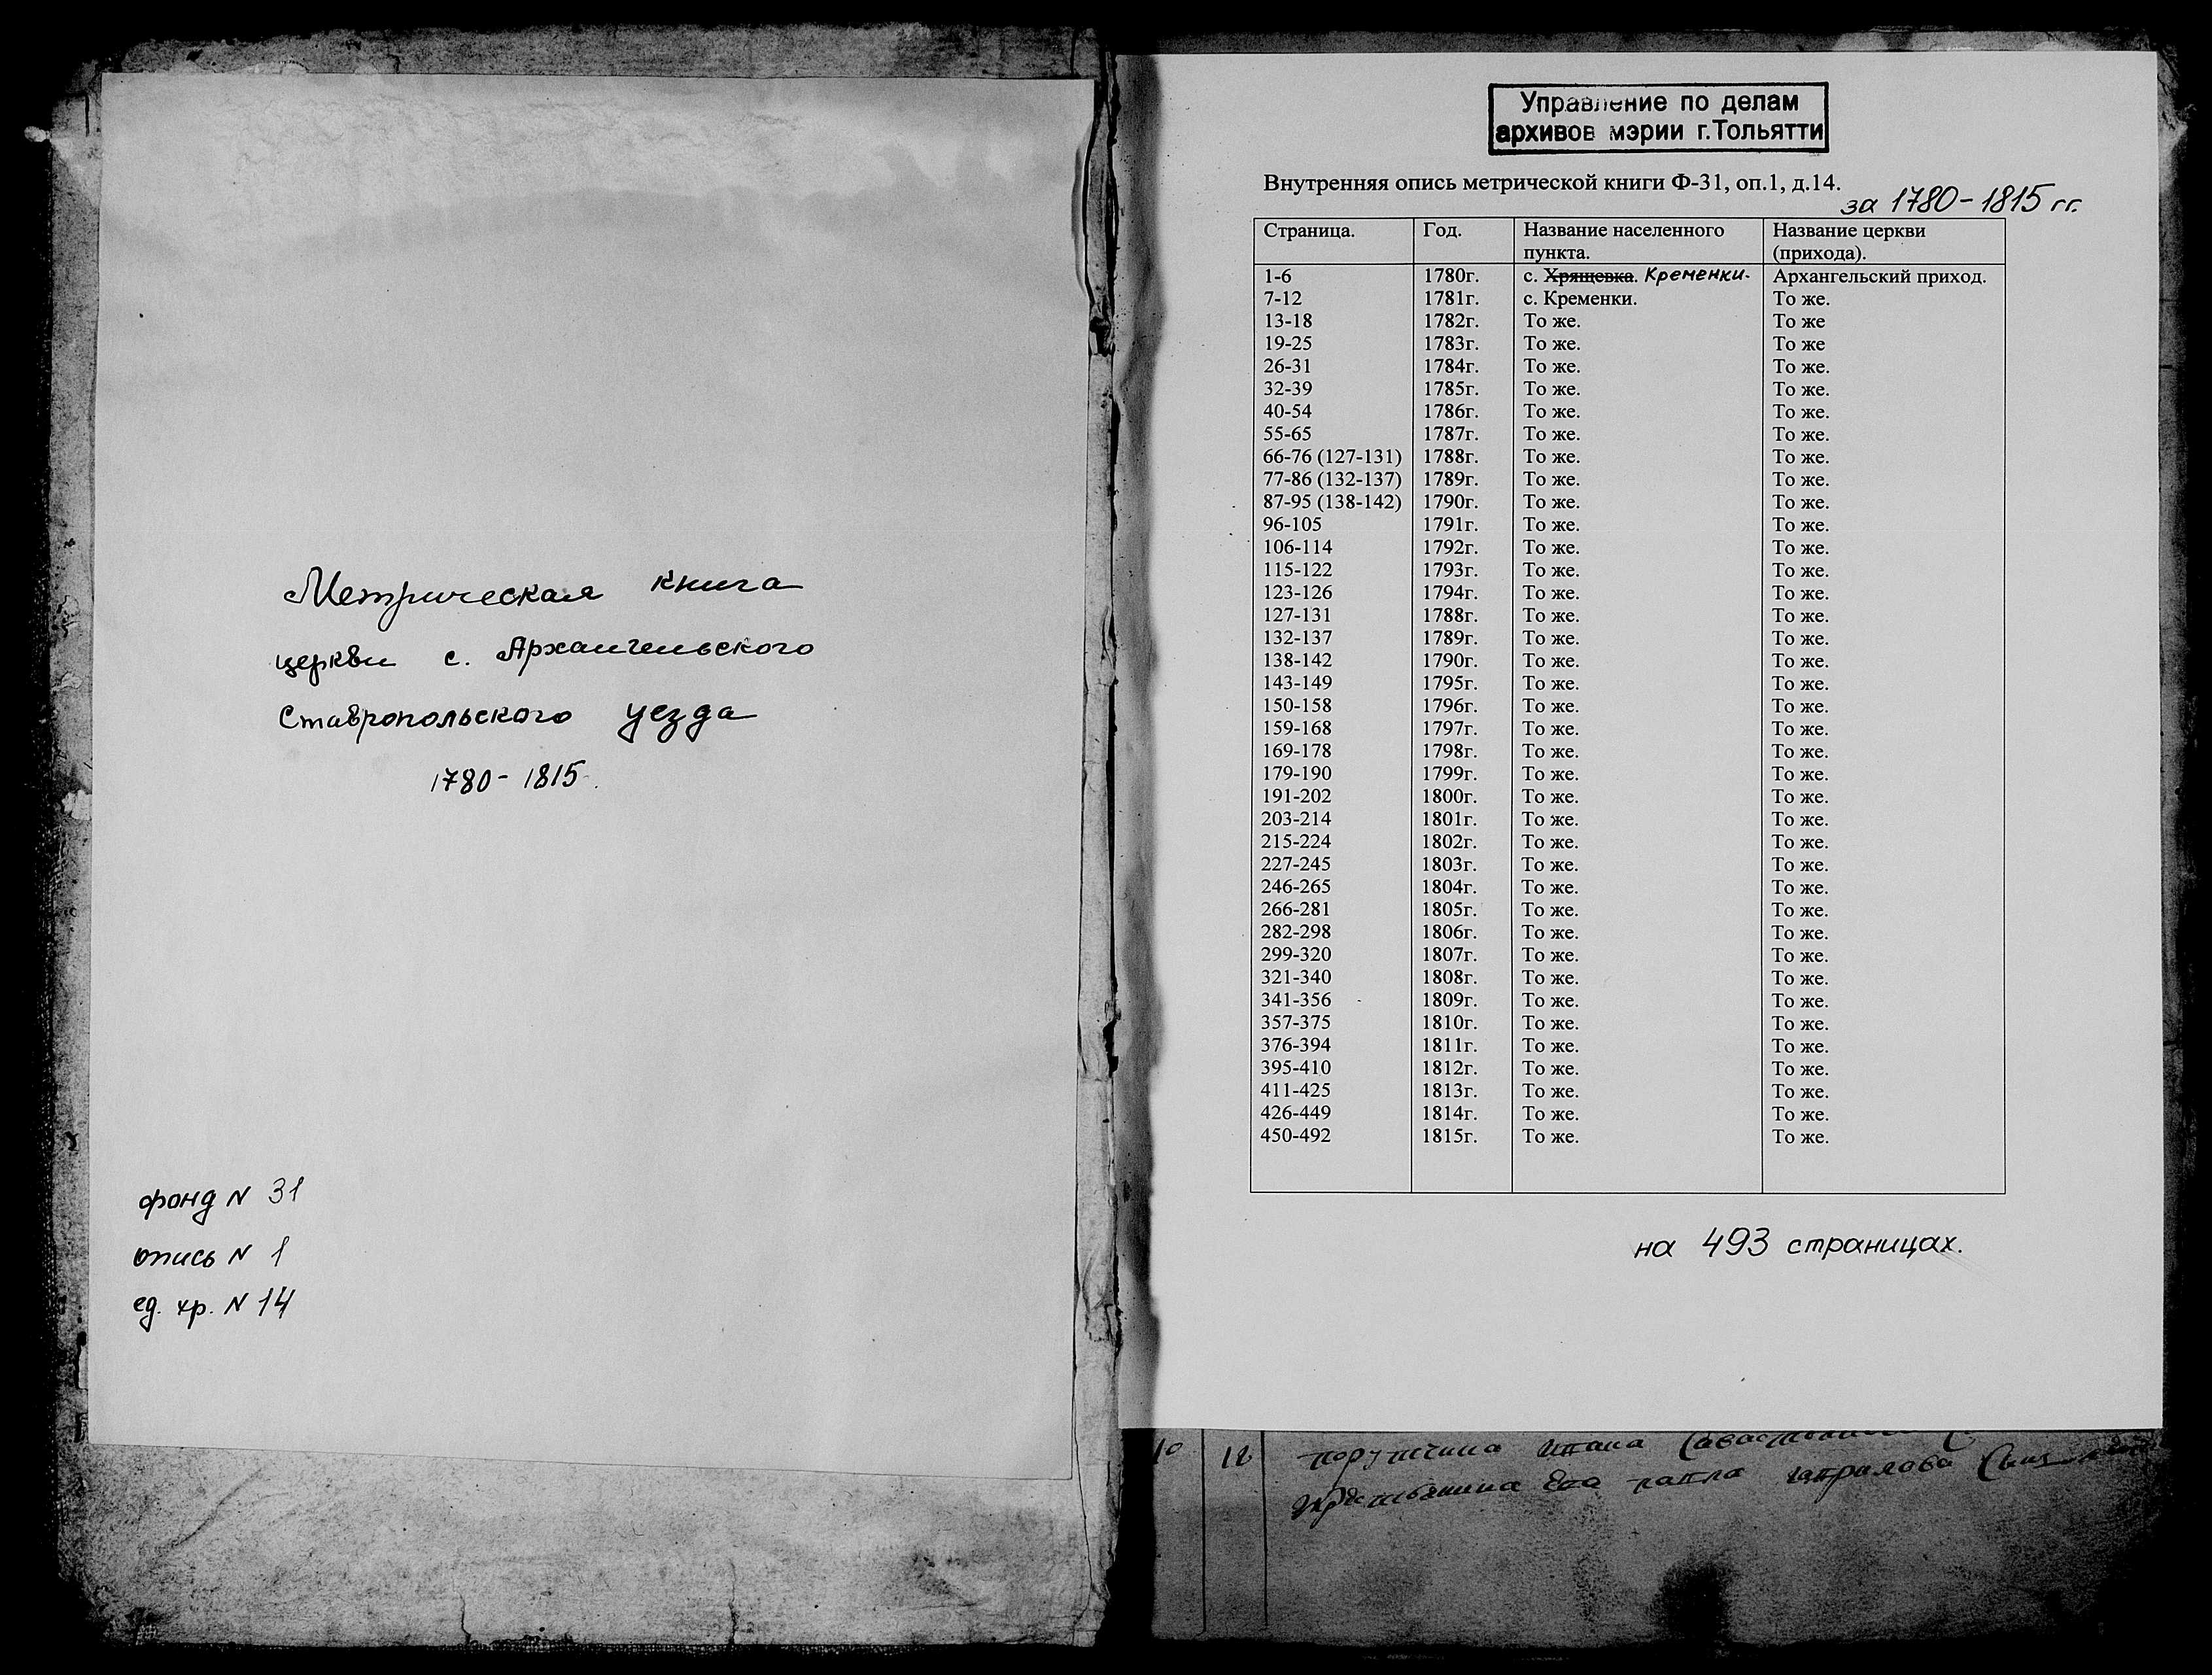 Метрическая книга
церкви с. Архангельского
Ставропольского уезда
1780-1815.
фонд N 31
опись N 1
ед. хр. N 14
Управление по делам
архивов мэрии г.Тольятти
Внутренняя опись метрической книги Ф-31, оп.1, д.14.
за 1780-1815 гг.
Страница. Год. Название населенного пункта. Название церкви (прихода).
1-6 1780г. с. Хрящевка. Кременки. Архангельский приход.
7-12 1781г. с. Кременки. То же.
13-18 1782г. То же. То же
19-25 1783г. То же. То же
26-31 1784г. То же. То же.
32-39 1785г. То же. То же.
40-54 1786г. То же. То же.
55-65 1787г. То же. То же.
66-76 (127-131) 1788г. То же. То же.
77-86 (132-137) 1789г. То же. То же.
87-95 (138-142) 1790г. То же. То же.
96-105 1791г. То же. То же.
106-114 1792г. То же. То же.
115-122 1793г. То же. То же.
123-126 1794г. То же. То же.
127-131 1788г. То же. То же.
132-137 1789г. То же. То же.
138-142 1790г. То же. То же.
143-149 1795г. То же. То же.
150-158 1796г. То же. То же.
159-168 1797г. То же. То же.
169-178 1798г. То же. То же.
179-190 1799г. То же. То же.
191-202 1800г. То же. То же.
203-214 1801г. То же. То же.
215-224 1802г. То же. То же.
227-245 1803г. То же. То же.
246-265 1804г. То же. То же.
266-281 1805г. То же. То же.
282-298 1806г. То же. То же.
299-320 1807г. То же. То же.
321-340 1808г. То же. То же.
341-356 1809г. То же. То же.
357-375 1810г. То же. То же.
376-394 1811г. То же. То же.
395-410 1812г. То же. То же.
411-425 1813г. То же. То же.
426-449 1814г. То же. То же.
450-492 1815г. То же. То же.
на 493 страницах.